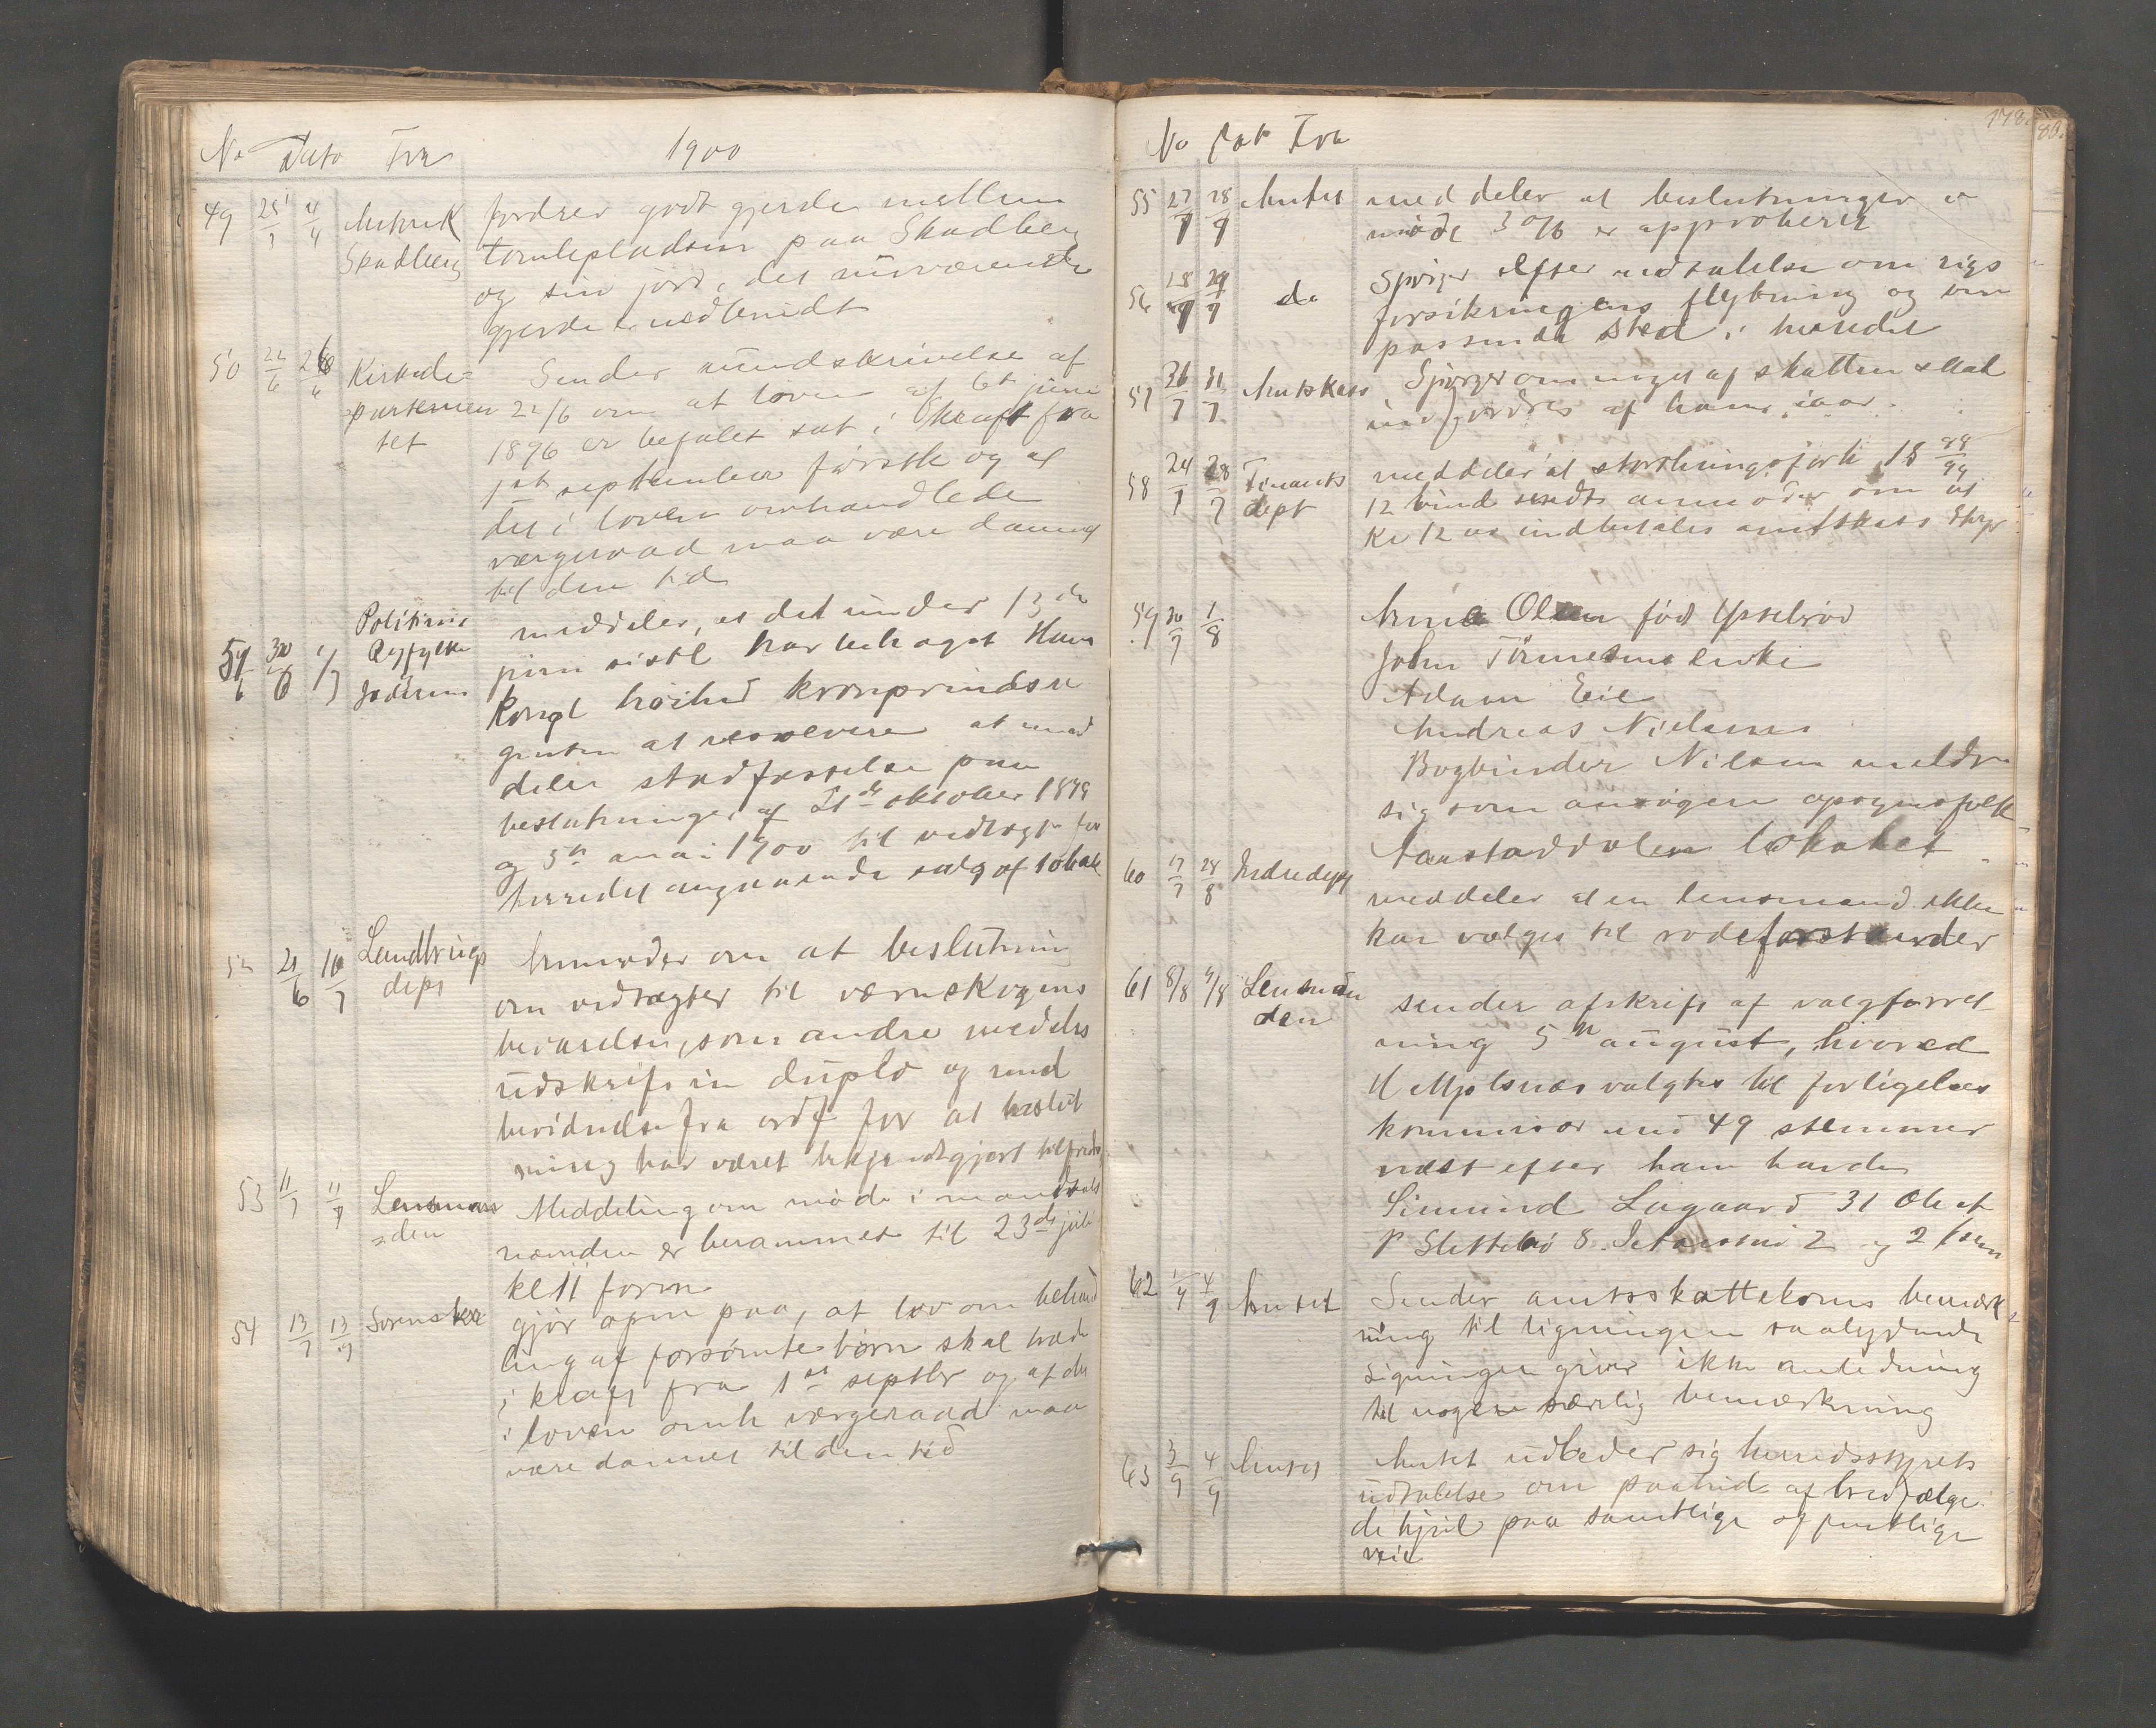 No Dato Fra 1900
49 25/1 4/4 fordrer godt gjerde mellem
Skadberg tomtepladsen paa Skadberg
og sin jord, det nuværende
gjerde er nedbrudt
50 22/6 26/6 Kirkede- Sender rundskrivelse af
partemen 22/6 om at loven af 6te juni
tet 1896 er befalet sat i kraft fra
1st september førstk og at
det i loven omhandlede
værgeraad maa være dannet
til den tid
Politim meddeler, at det under 13de
51 30/6 1/7 Ryfylke juni sistl har behaget Hans
Jæderen kongl høihed kronprindsre
genten at resolvere at med
deles stadfæstelse paa
beslutninger af 21de oktober 1899
og 5te mai 1900 til vedtægt for
herredet angaaende salg af tobak
52 21/6 10/7 Landbrugs Anmoder om at beslutning
dept om vedtægter til værnskogens
bevarelse, som andre meddeles
udskrift in duplo og med
bevidnelse fra ordf for at beslut
ning har været bekjendtgjort tilfreds
53 11/7 11/7 Lensman Meddeling om møde i mandtals
den nævnden er berammet til 23de juli
kl 11 form
54 13/7 13/7 Sorenskr gjør opm paa, at lov om behand
ling af forsømte børn skal træde
i kraft fra 1st septbr og at det
i loven omh værgeraad maa
være dannet til den tid
178. 80.
No Dat Fra
55 27/7 28/7 Amtet meddeler at beslutninger i
møde 30/6 er approberet
56 28/7 29/7 do Spørger efter udtalelse om rigs
forsikringens flytning og om
passende sted i herredet
57 26/7 31/7 Amtskass Spørger om noget af skatten skal
indfordres af ham iaar.
58 24/7 28/7 Finants meddeler at storthingsforh 18 98/99
dept 12 bind sendt anmoder om at
Kr 12 00 indbetales amtskass
59 30/7 1/8 Anna Olsen født Ystebrød
John Tønnesens enke
Adam Eie
Andreas Nielsen
Bogbinder Nilsen melder
sig som ansøgere opsynsfolk
Aarstaddalen lokalet
60 17/7 24/8 Indredept meddeler at en lensmand ikke
kan vælges til rodeforstander
61 8/8 9/8 Lensman sender afskrift af valgforret
den ning 5te august, hvorved
M Mjølsnes valgtes til forligelses
kommisær med 49 stemmer
næst efter ham havde
Simund Legaard 31 Ole
P Slettebø 8. 2 og 2
62 1/9 4/9 Amtet Sender amtsskattekoms bemærk
ning til ligningen saalydende
Ligningen giver ikke anledning
til nogen særlig bemærkning
63 3/9 4/9 Amtet Amtet udbeder sig herredsstyrets
udtalelse om paabud af bredfælge
de hjul paa samtlige offentlige
veie